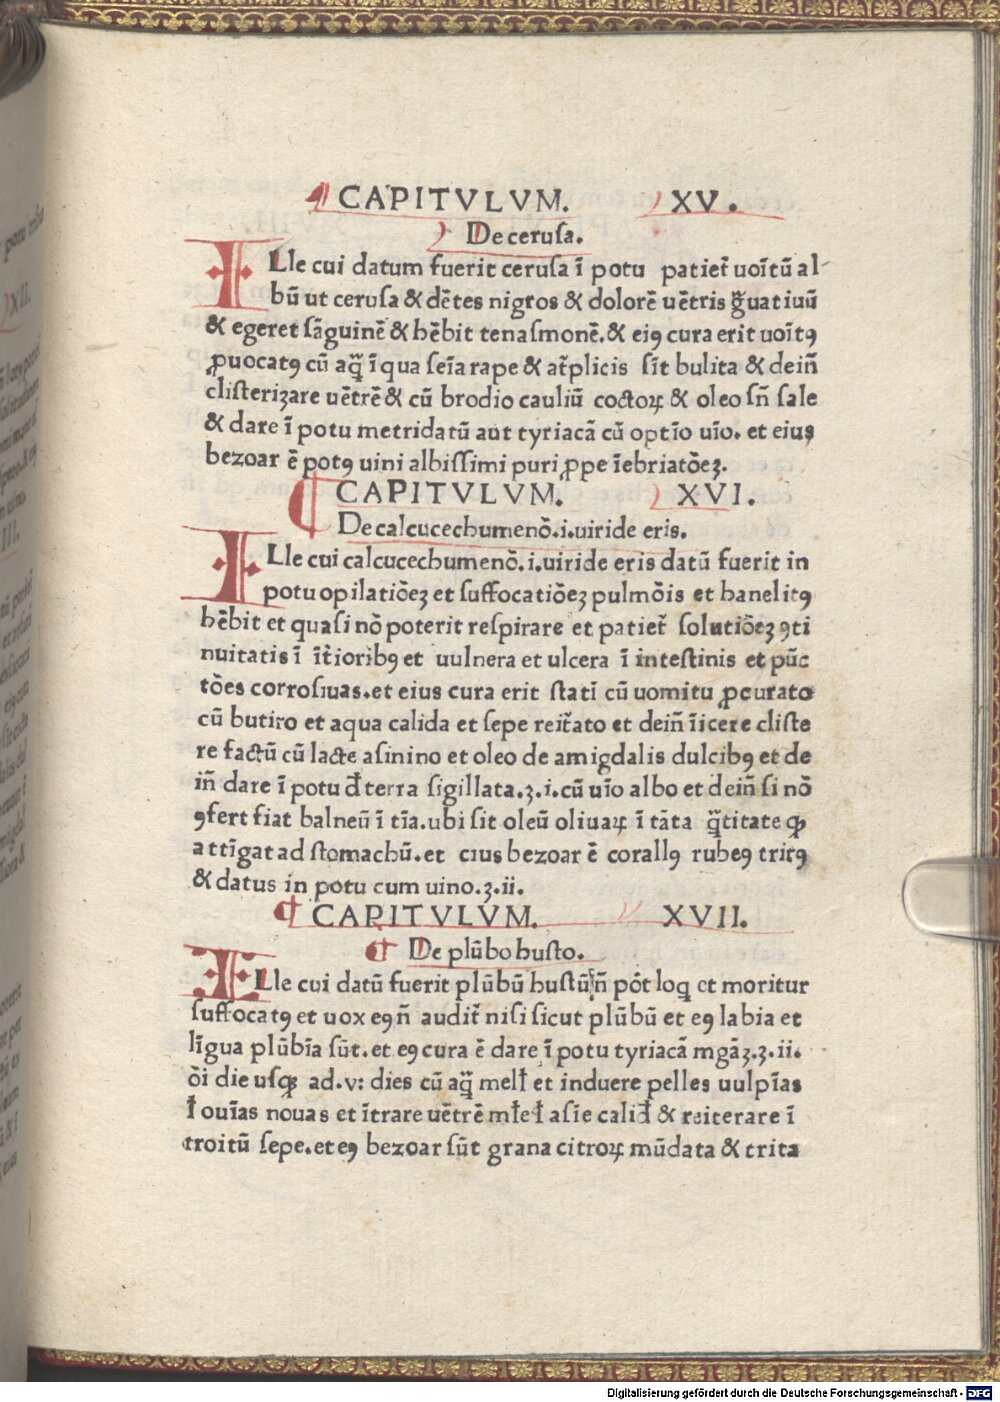 ¶ CAPITVLVM. XV.
De cerusa.
ILle cui datum fuerit cerusa ī potu patiet᷑ uoītū al
bū ut cerusa & dētes nigros & dolorē uētris g̃uatiuū
& egeret sāguinē & hēbit tenasmonē. & eiꝯ cura erit uoītꝯ
ꝓuocatꝯ cū aq̃ ī qua seīa rape & at᷑plicis sīt bulita & deiñ
clisterizare uētrē & cū brodio cauliū coctoꝝ & oleo sñ sale
& dare ī potu metridatū aut tyriacā cū optīo uīo. et eius
bezoar ē potꝯ uini albissimi puri ꝓpe īebriatōeȝ.
¶ CAPITVLVM. XVI.
De calcucechumenō.i.uiride eris.
ILle cui calcucechumenō.i.uiride eris datū fuerit in
potu opilatiōeȝ et suffocatiōeȝ pulmōis et hanelitꝯ
hēbit et quasi nō poterit respirare et patiet᷑ solutiōeȝ ꝯti
nuitatis ī īt᷑ioribꝯ et uulnera et ulcera ī intestinis et pūc
tōes corrosiuas. et eius cura erit statī cū uomitu ꝓcurato
cū butiro et aqua calida et sepe reit᷑ato et deiñ īicere cliste
re factū cū lacte asinino et oleo de amigdalis dulcibꝯ et de
iñ dare ī potu đ terra sigillata.ʒ.i.cū uīo albo et deiñ si nō
ꝯfert fiat balneū ī tīa.ubi sit oleū oliuaꝝ ī tāta q̃titate ꝙ
attīgat ad stomachū.et eius bezoar ē corallꝯ rubeꝯ tritꝯ
& datus in potu cum uino.ʒ.ii.
¶ CAPITVLVM. XVII.
¶ De plūbo busto.
ILle cui datū fuerit plūbū bustū ñ pōt loq̨ et moritur
suffocatꝯ et uox eꝯ ñ audit᷑ nisi sicut plūbū et eꝯ labia et
līgua plūbīa sūt. et eꝯ cura ē dare ī potu tyriacā mgāȝ.ʒ.ii.
ōi die usqꝫ ad.v: dies cū aq̃ mell̄ et induere pelles uulpīas
ł ouīas nouas et ītrare uētrē mīe ł asīe calid̄ & reiterare ī
troitū sepe. et eꝯ bezoar sūt grana citroꝝ mūdata & trita
Digitalisierung gefördert durch die Deutsche Forschungsgemeinschaft - DFG